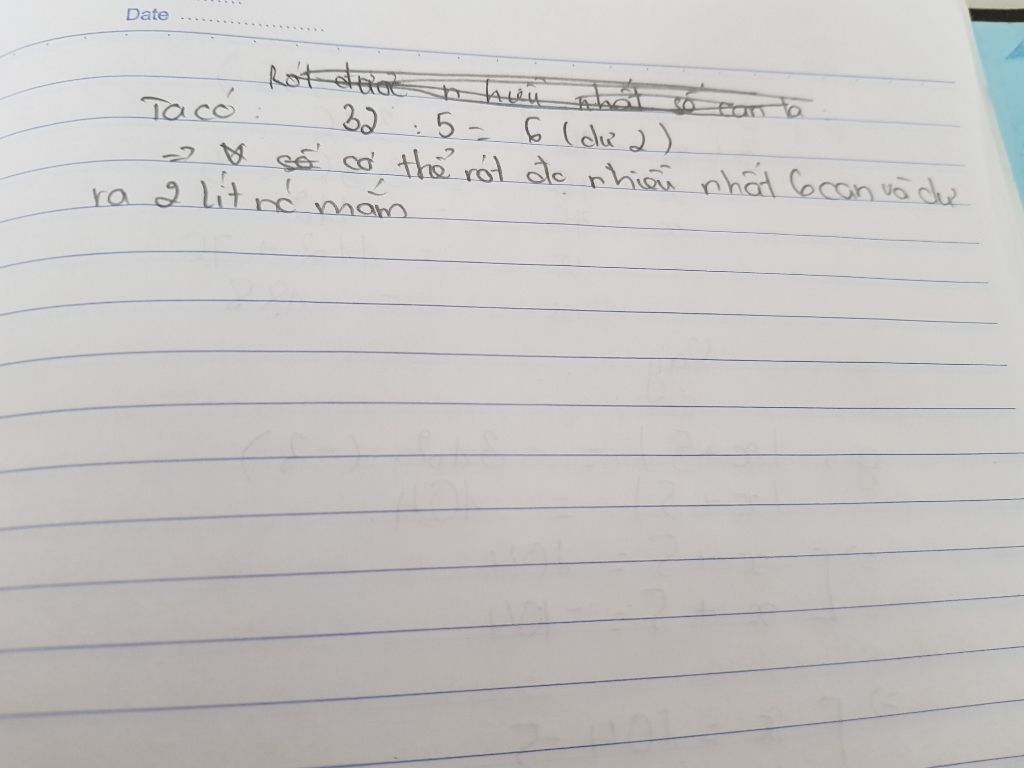 Date
Rót được nhiều nhất số can là
Ta có: 32 : 5 = 6 (dư 2)
=> Vậy số có thể rót đc nhiều nhất 6 can và dư
ra 2 lít nc mắm